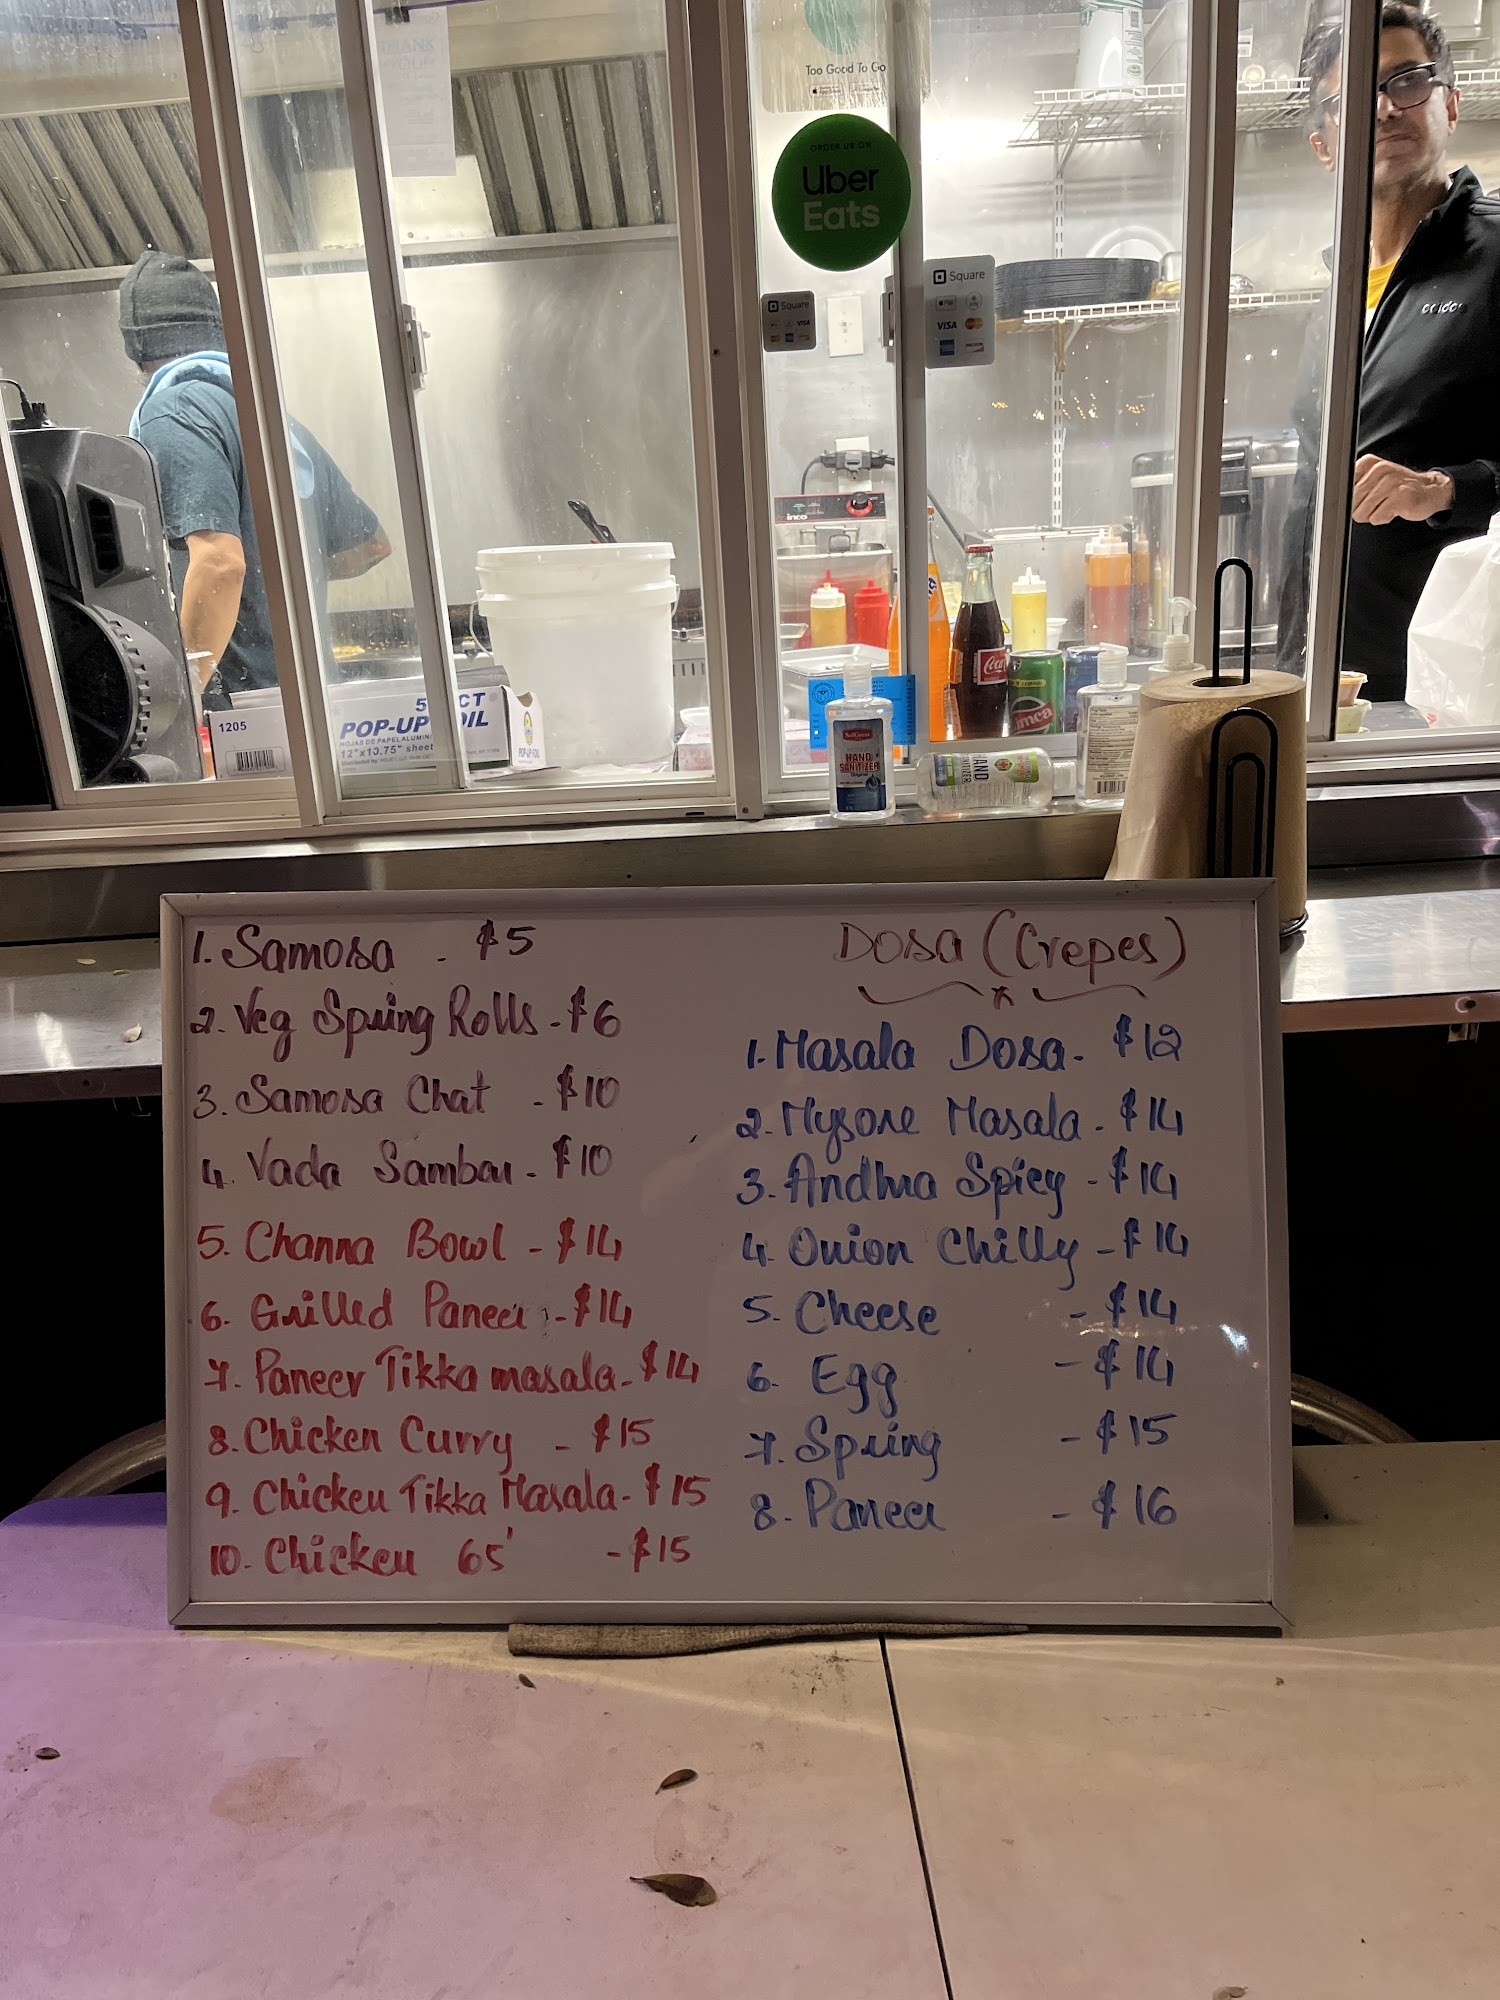 Too Good To Go
ORDER US ON
Uber
Eats
Square
VISA
Square
Pay
VISA
adidas
inco
Coca
1205
POP-UP FOIL
HOJAS DE PAPEL ALUMINIO
12"x10.75" sheet
POP-UP FOIL
HAND
SANITIZER
HAND
1. Samosa - $5
2. Veg Spring Rolls - $6
3. Samosa Chat - $10
4. Vada Sambar - $10
5. Channa Bowl - $14
6. Grilled Paneer - $14
7. Paneer Tikka masala - $14
8. Chicken Curry - $15
9. Chicken Tikka Masala - $15
10. Chicken 65' - $15
Dosa (Crepes)
1. Masala Dosa - $12
2. Mysore Masala - $14
3. Andhra Spicy - $14
4. Onion Chilly - $14
5. Cheese - $14
6. Egg - $14
7. Spring - $15
8. Paneer - $16